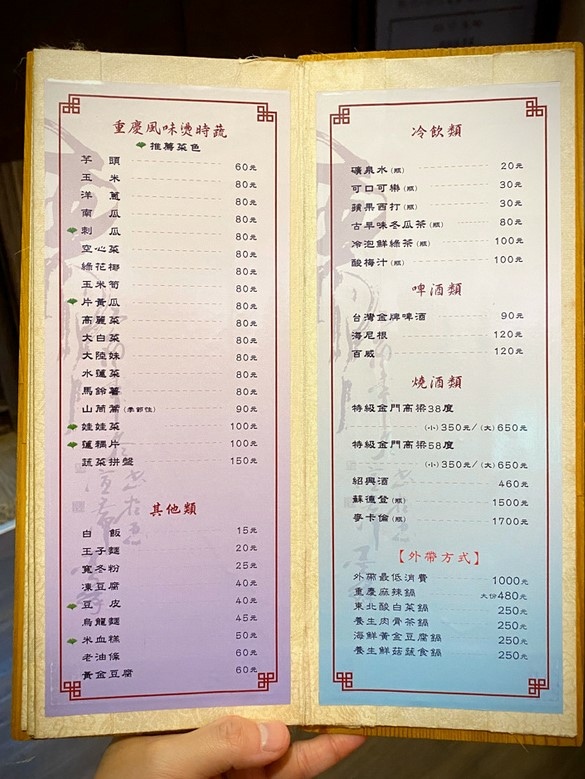 重慶風味燙時蔬
推薦菜色
芋頭 60元
玉米 80元
洋蔥 80元
南瓜 80元
刺瓜 80元
空心菜 80元
綠花椰 80元
玉米筍 80元
片黃瓜 80元
高麗菜 80元
大白菜 80元
大陸妹 80元
水蓮菜 80元
馬鈴薯 80元
山茼蒿(季節性) 90元
娃娃菜 100元
蓮藕片 100元
蔬菜拼盤 150元
其他類
白飯 15元
王子麵 20元
寬冬粉 25元
凍豆腐 40元
豆皮 40元
烏龍麵 45元
米血糕 50元
老油條 60元
黃金豆腐 60元
冷飲類
礦泉水(瓶) 20元
可口可樂(瓶) 30元
蘋果西打(瓶) 30元
古早味冬瓜茶(瓶) 80元
冷泡鮮綠茶(瓶) 100元
酸梅汁(瓶) 100元
啤酒類
台灣金牌啤酒 90元
海尼根 120元
百威 120元
燒酒類
特級金門高粱38度
(小)350元/(大)650元
特級金門高粱58度
(小)350元/(大)650元
紹興酒 460元
蘇格登(瓶) 1500元
麥卡倫(瓶) 1700元
【外帶方式】
外帶最低消費 1000元
重慶麻辣鍋 大份480元
東北酸白菜鍋 250元
養生肉骨茶鍋 250元
海鮮黃金豆腐鍋 250元
養生鮮菇蔬食鍋 250元